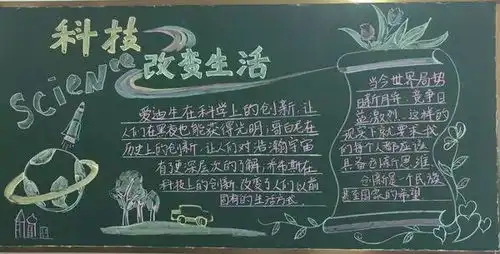 科技
Science
改变生活
爱迪生在科学上的创新,让
人们在黑夜也能获得光明;哥白尼在
历史上的创新,让人们对浩瀚宇宙
有更深层次的了解;乔布斯在
科技上的创新改变了人们以前
固有的生活方式
当今世界局势
日新月异,竞争日
益激烈,这样的
现实下就要求我
们每个人都应该
具备创新思维
创新是一个民族
甚至国家的希望